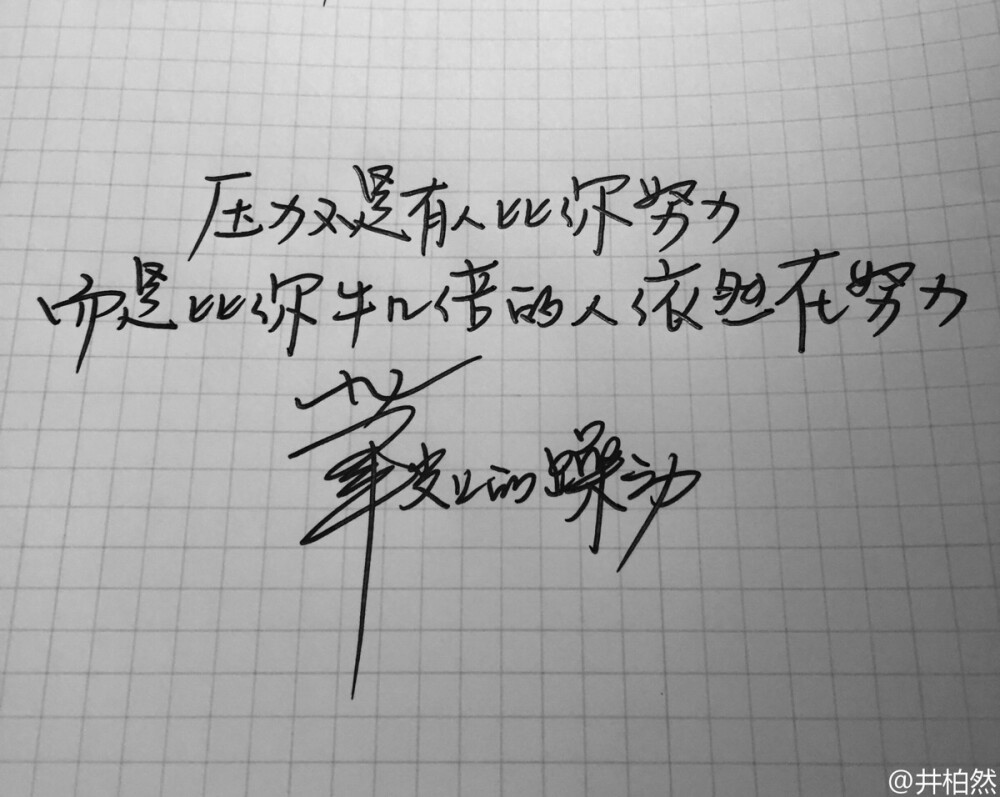 压力不是有人比你努力
而是比你牛几倍的人依然在努力
筆尖上的躁动
@井柏然